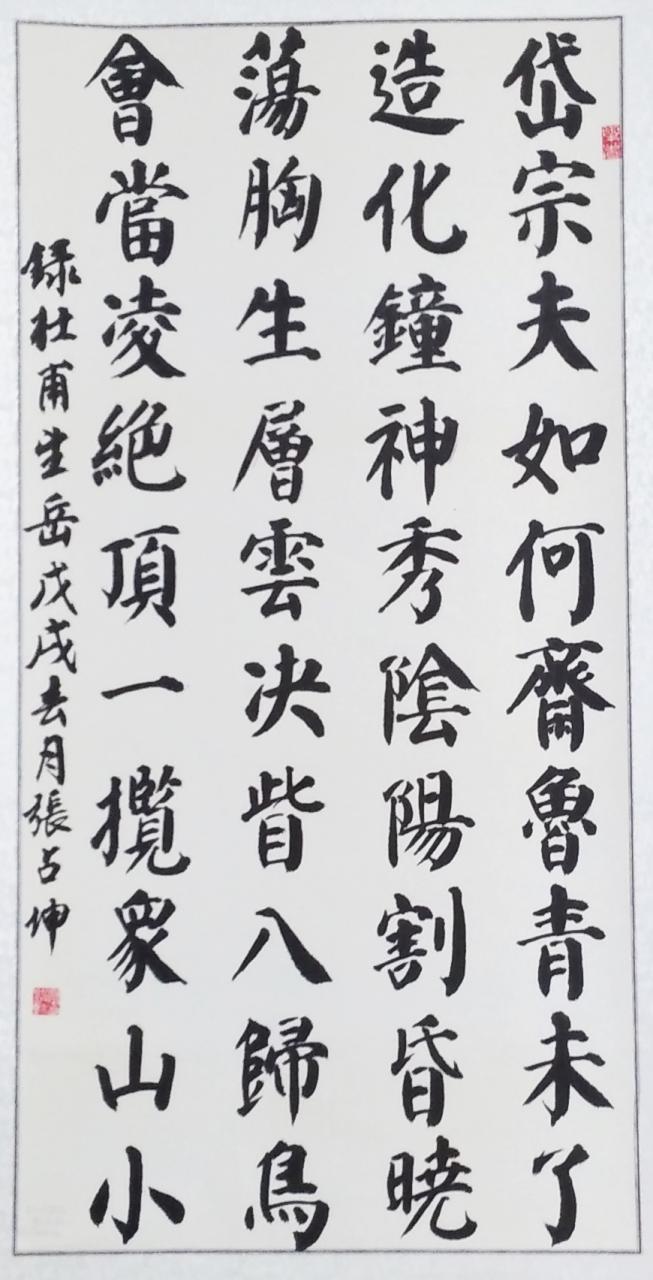 岱宗夫如何齊魯青未了
造化鐘神秀陰陽割昏暁
蕩胸生層雲决眥八歸鳥
會當凌絶頂一攬衆山小
録杜甫望岳戊戌月張占坤